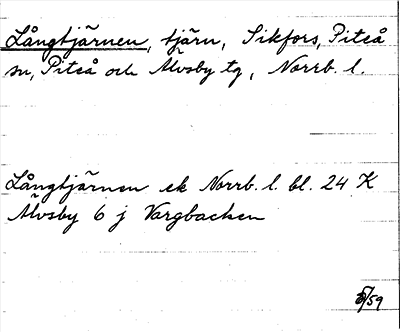 Långtjärnen, tjärn, Sikfors, Piteå
sn, Piteå och Älvsby tg, Norrb. l.
Långtjärnen ek Norrb. l. bl. 24 K
Älvsby 6 j Vargbacken
/59